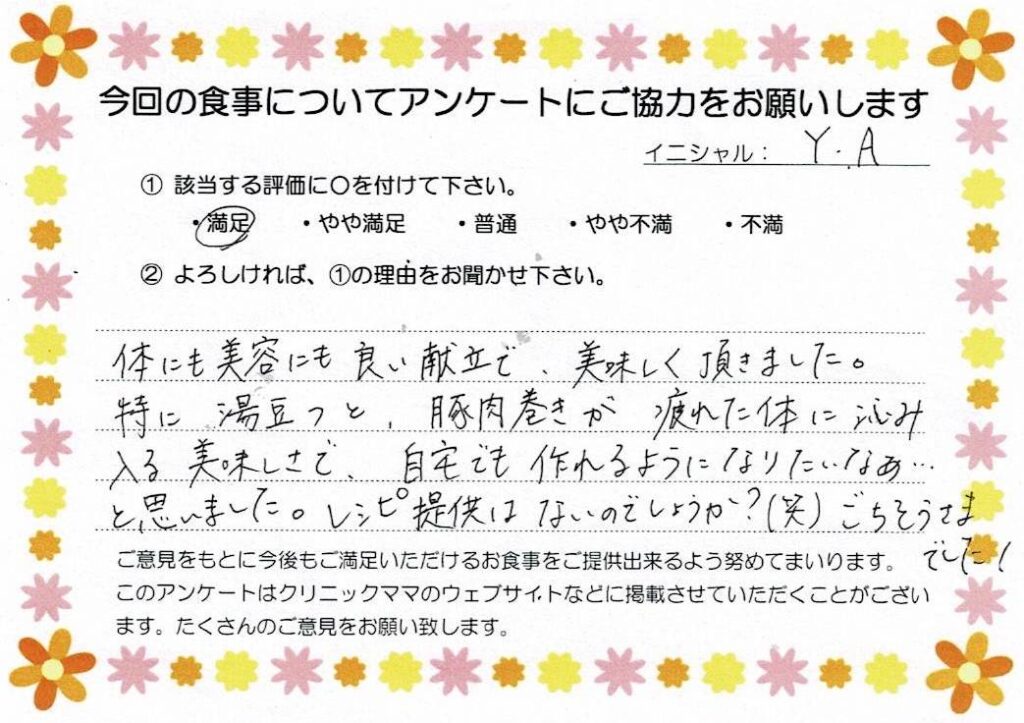 今回の食事についてアンケートにご協力をお願いします
イニシャル： Y.A
① 該当する評価に〇を付けて下さい。
・満足 ・やや満足 ・普通 ・やや不満 ・不満
② よろしければ、①の理由をお聞かせ下さい。
体にも美容にも良い献立で、美味しく頂きました。
特に 湯豆つと、豚肉巻きが 疲れた体に 沁み
入る 美味しさで、自宅でも 作れるようになりたいなぁ…
と思いました。レシピ提供はないのでしょうか?(笑)ごちそうさま
でした!
ご意見をもとに今後もご満足いただけるお食事をご提供出来るよう努めてまいります。
このアンケートはクリニックママのウェブサイトなどに掲載させていただくことがござい
ます。たくさんのご意見をお願い致します。